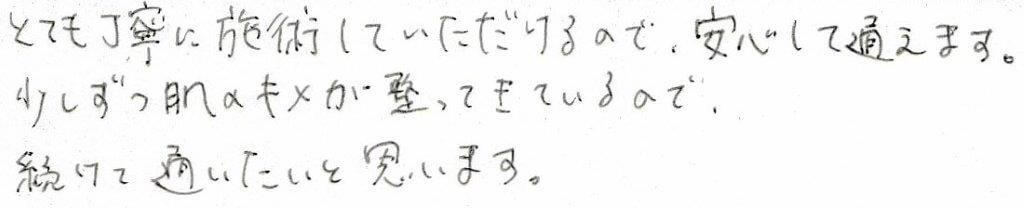 とても丁寧に施術していただけるので、安心して通えます。
少しずつ肌のキメが整ってきているので、
続けて通いたいと思います。